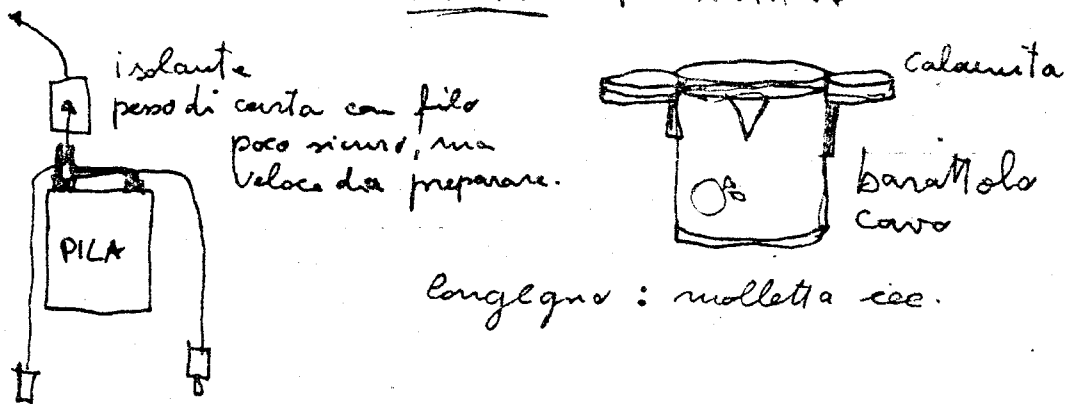 isolante
pezzo di carta con filo
poco sicuro, ma
veloce da preparare.
PILA
calamita
barattolo
cavo
congegno : molletta ecc.